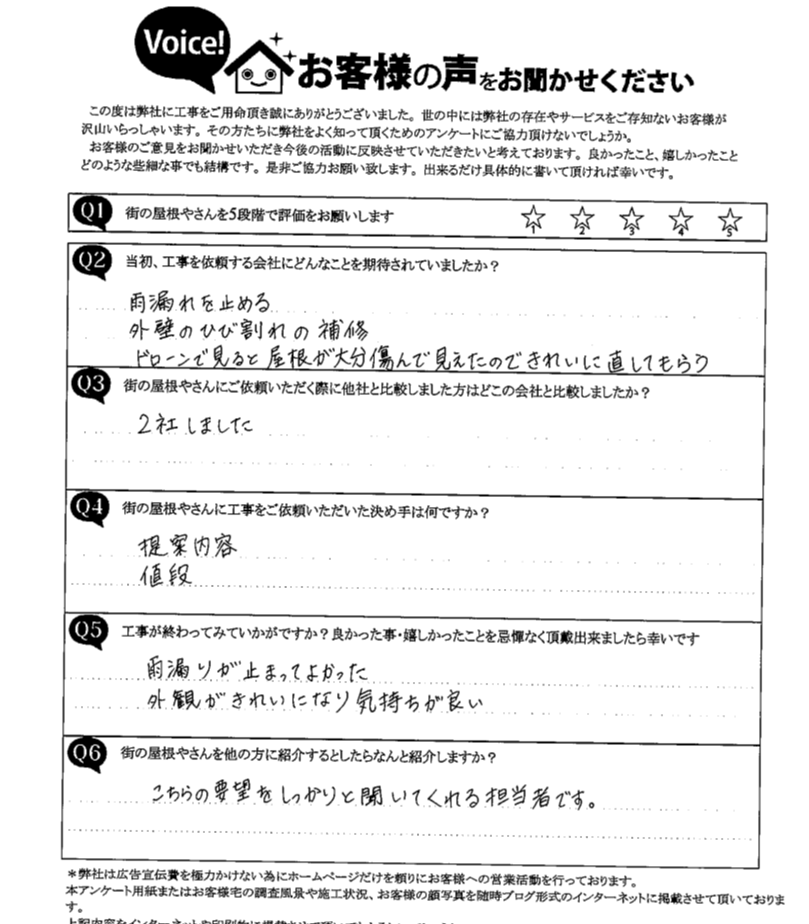 Voice!
お客様の声をお聞かせください
この度は弊社に工事をご用命頂き誠にありがとうございました。世の中には弊社の存在やサービスをご存知ないお客様が
沢山いらっしゃいます。その方たちに弊社をよく知って頂くためのアンケートにご協力頂けないでしょうか。
お客様のご意見をお聞かせいただき今後の活動に反映させていただきたいと考えております。良かったこと、嬉しかったこと
どのような些細な事でも結構です。是非ご協力お願い致します。出来るだけ具体的に書いて頂ければ幸いです。
Q1 街の屋根やさんを5段階で評価をお願いします ☆1 ☆2 ☆3 ☆4 ☆5
Q2 当初、工事を依頼する会社にどんなことを期待されていましたか？
雨漏れを止める
外壁のひび割れの補修
ドローンで見ると屋根が大分傷んで見えたのできれいに直してもらう
Q3 街の屋根やさんにご依頼いただく際に他社と比較しました方はどこの会社と比較しましたか？
2社しました
Q4 街の屋根やさんに工事をご依頼いただいた決め手は何ですか？
提案内容
値段
Q5 工事が終わってみていかがですか？良かった事・嬉しかったことを忌憚なく頂戴出来ましたら幸いです
雨漏りが止まってよかった
外観がきれいになり気持ちが良い
Q6 街の屋根やさんを他の方に紹介するとしたらなんと紹介しますか？
こちらの要望をしっかりと聞いてくれる担当者です。
＊弊社は広告宣伝費を極力かけない為にホームページだけを頼りにお客様への営業活動を行っております。
本アンケート用紙またはお客様宅の調査風景や施工状況、お客様の顔写真を随時ブログ形式のインターネットに掲載させて頂いておりま
す。